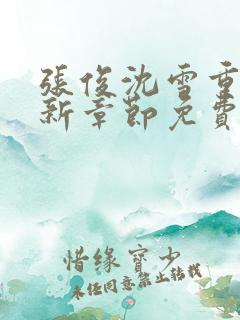 張俊沈雪重
新章節免費
惜缘寳少
未任同意禁止转载